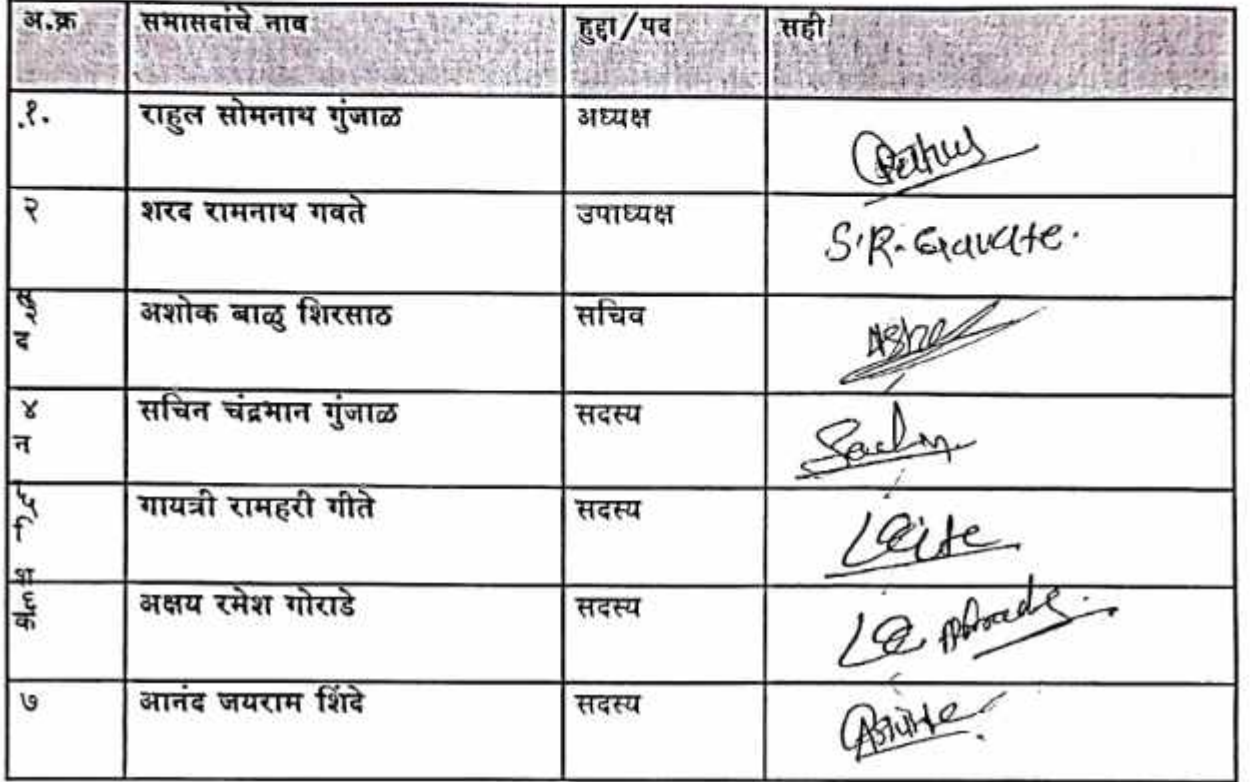 अ.क्र सभासदांचे नाव हुद्दा/पद सही
१. राहुल सोमनाथ गुंजाळ अध्यक्ष Rahul
२ शरद रामनाथ गवते उपाध्यक्ष S.R. Gavate.
अशोक बाळु शिरसाठ सचिव
४ सचिन चंद्रभान गुंजाळ सदस्य Sachin
न
गायत्री रामहरी गीते सदस्य Gite
अक्षय रमेश गोराडे सदस्य
७ आनंद जयराम शिंदे सदस्य